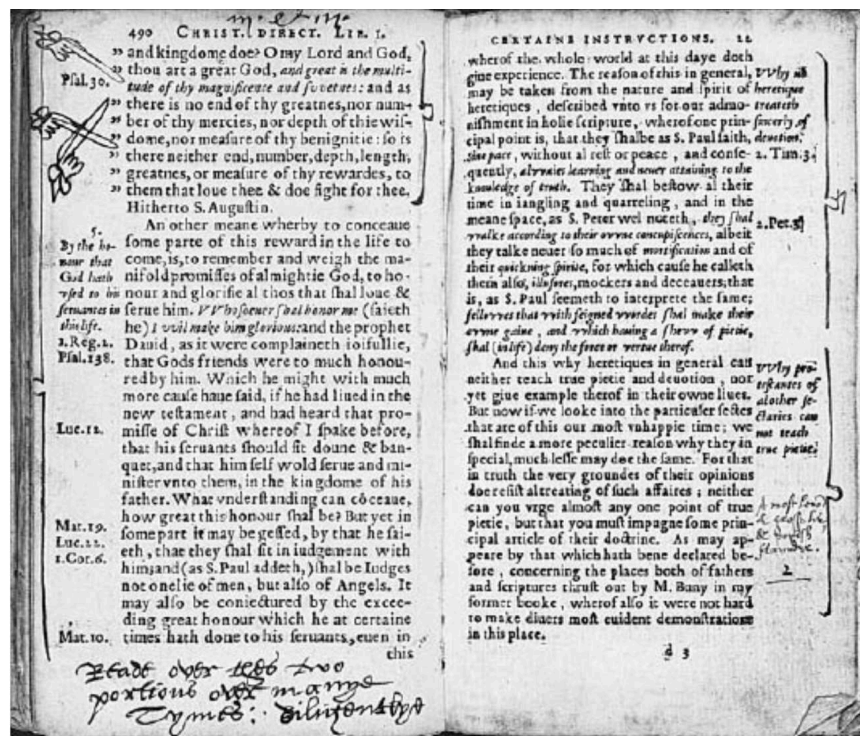 490 CHRIST. DIRECT. LIB. 1.
„ and kingdome doe? O my Lord and God,
„ thou art a great God, and great is the multi-
Psal. 30. „ tude of thy magnificence and sweetnes: and as
„ there is no end of thy greatnes, nor num-
„ ber of thy mercies, nor depth of thie wis-
„ dome, nor measure of thy benignitie: so is
„ there neither end, number, depth, length,
„ greatnes, or measure of thy rewardes, to
„ them that loue thee & doe fight for thee.
Hitherto S. Augustin.
5.
An other meane wherby to conceaue
By the ho-
some parte of this reward in the life to
nour that
come, is, to remember and weigh the ma-
God hath
nifold promisses of almightie God, to ho-
vsed to his
nour and glorifie al thos that shal loue &
seruantes in
serue him. VVhosoeuer shal honor me (saieth
this life.
he) I vvil make him glorious: and the prophet
2. Reg. 2.
Dauid, as it were complaineth ioifullie,
Psal. 138.
that Gods friends were to much honou-
red by him. Which he might with much
more cause haue said, if he had liued in the
new testament, and had heard that pro-
Luc. 12. misse of Christ whereof I spake before,
that his seruants should sit doune & ban-
quet, and that him self wold serue and mi-
nister vnto them, in the kingdome of his
father. What vnderstanding can cōceaue,
how great this honour shal be? But yet in
Mat. 19. some part it may be gessed, by that he sai-
Luc. 22. eth, that they shal sit in iudgement with
1. Cor. 6. him: and (as S. Paul addeth,) shal be Iudges
not onelie of men, but also of Angels. It
may also be coniectured by the excee-
ding great honour which he at certaine
Mat. 10. times hath done to his seruants, euen in
this
Reade over thes two
portions over manye
Tymes: Diligentlye
CERTAINE INSTRVCTIONS. 22
wherof the whole world at this daye doth
giue experience. The reason of this in general,
may be taken from the nature and spirit of
heretiques, described vnto vs for our admo-
nishment in holie scripture, wherof one prin-
cipal point is, that they shalbe as S. Paul saith,
sine pace, without al rest or peace, and conse-
quently, alvvaies learning and neuer attaining to the
knowledge of truth. They shal bestow al their
time in iangling and quarreling, and in the
meane space, as S. Peter wel noteth, they shal
vvalke according to their ovvne concupiscences, albeit
they talke neuer so much of mortification and of
their quickning spirite, for which cause he calleth
them also, illusores, mockers and deceauers; that
is, as S. Paul seemeth to interprete the same;
fellovves that vvith feigned vvordes shal make their
ovvne gaine, and vvhich hauing a shevv of pietie,
shal (in life) deny the force or vertue therof.
And this why heretiques in general can
neither teach true pietie and deuotion, nor
yet giue example therof in their owne liues.
But now if we looke into the particuler sectes
that are of this our most vnhappie time; we
shal finde a more peculier reason why they in
special, much lesse may doe the same. For that
in truth the very groundes of their opinions
doe resist al treating of such affaires; neither
can you vrge almost any one point of true
pietie, but that you must impagne some prin-
cipal article of their doctrine. As may ap-
peare by that which hath bene declared be-
fore, concerning the places both of fathers
and scriptures thrust out by M. Buny in my
former booke, wherof also it were not hard
to make diuers most euident demonstrations
in this place.
d 3
VVhy no
heretique
treateth
sincerly of
deuotion.
2. Tim. 3.
2. Pet. 3.
VVhy pro-
testantes of
al other se-
ctaries can
not teach
true pietie.
2